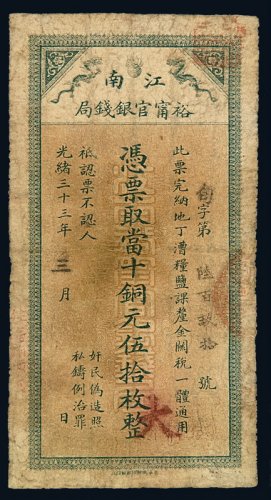 江南
裕甯官銀錢局
此票完納地丁漕糧鹽課釐金關稅一體適用
字第陸百玖拾號
憑票取當十銅元伍拾枚整
祗認票不認人
光緒三十三年三月 日
奸民偽造照
私鑄例治罪